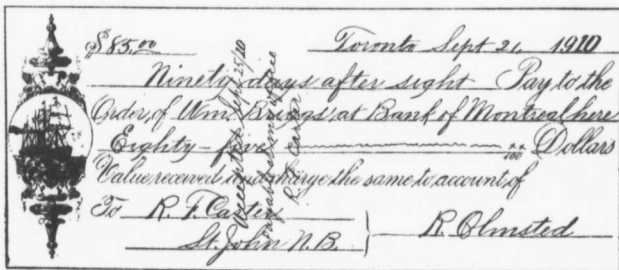 $85.00 Toronto Sept 21, 1910
Ninety days after sight Pay to the
Order of Wm. Briggs, at Bank of Montreal here
Eighty-five xx/100 Dollars
Value received and charge the same to account of
To R. F. Carter
St. John N.B.
R. Olmsted
Accepted Sept 25/10
Payable at my office
R. F. Carter